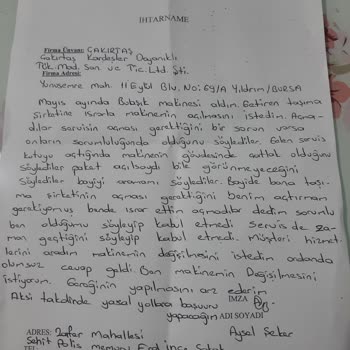 IHTARNAME
Firma Ünvanı: ÇAKIRTAŞ
Çakırtaş Kardeşler Dayanıklı
Tük. Mad. San. ve Tic. Ltd. Şti.
Firma Adresi:
Yunusemre mah. 11 Eylül Blv. No: 69/A Yıldırım/BURSA
Mayıs ayında Bulaşık makinesi aldım. Getiren taşıma
şirketine ısrarla makinenin açılmasını istedim. Açma-
dılar servisin açması gerektiğini bir sorun varsa
onların sorumluluğunda olduğunu söylediler. Gelen servis
kutuyu açtığında makinenin gövdesinde çatlak olduğunu
söylediler paket açılsaydı bile görünmeyeceğini
söylediler bayiyi aramamı söylediler. Bayide bana taşı-
ma şirketinin açması gerektiğini benim açtırmam
gerekiyomuş bende ısrar ettim açmadılar dedim sorumlu
ben olduğumu söyleyip kabul etmedi. Serviste za-
man geçtiğini söyleyip kabul etmedi. Müşteri hizmet-
lerini aradım makinemin değişilmesini istedim ordanda
olumsuz cevap geldi. Ben makinemin Değişilmesini
istiyorum. Gereğinin yapılmasını arz ederim
Aksi takdirde yasal yollara başvuru IMZA
yapacağım ADI SOYADI
ADRES: Zafer Mahallesi Aysel Şeker
Şehit Polis memuru
TEL: